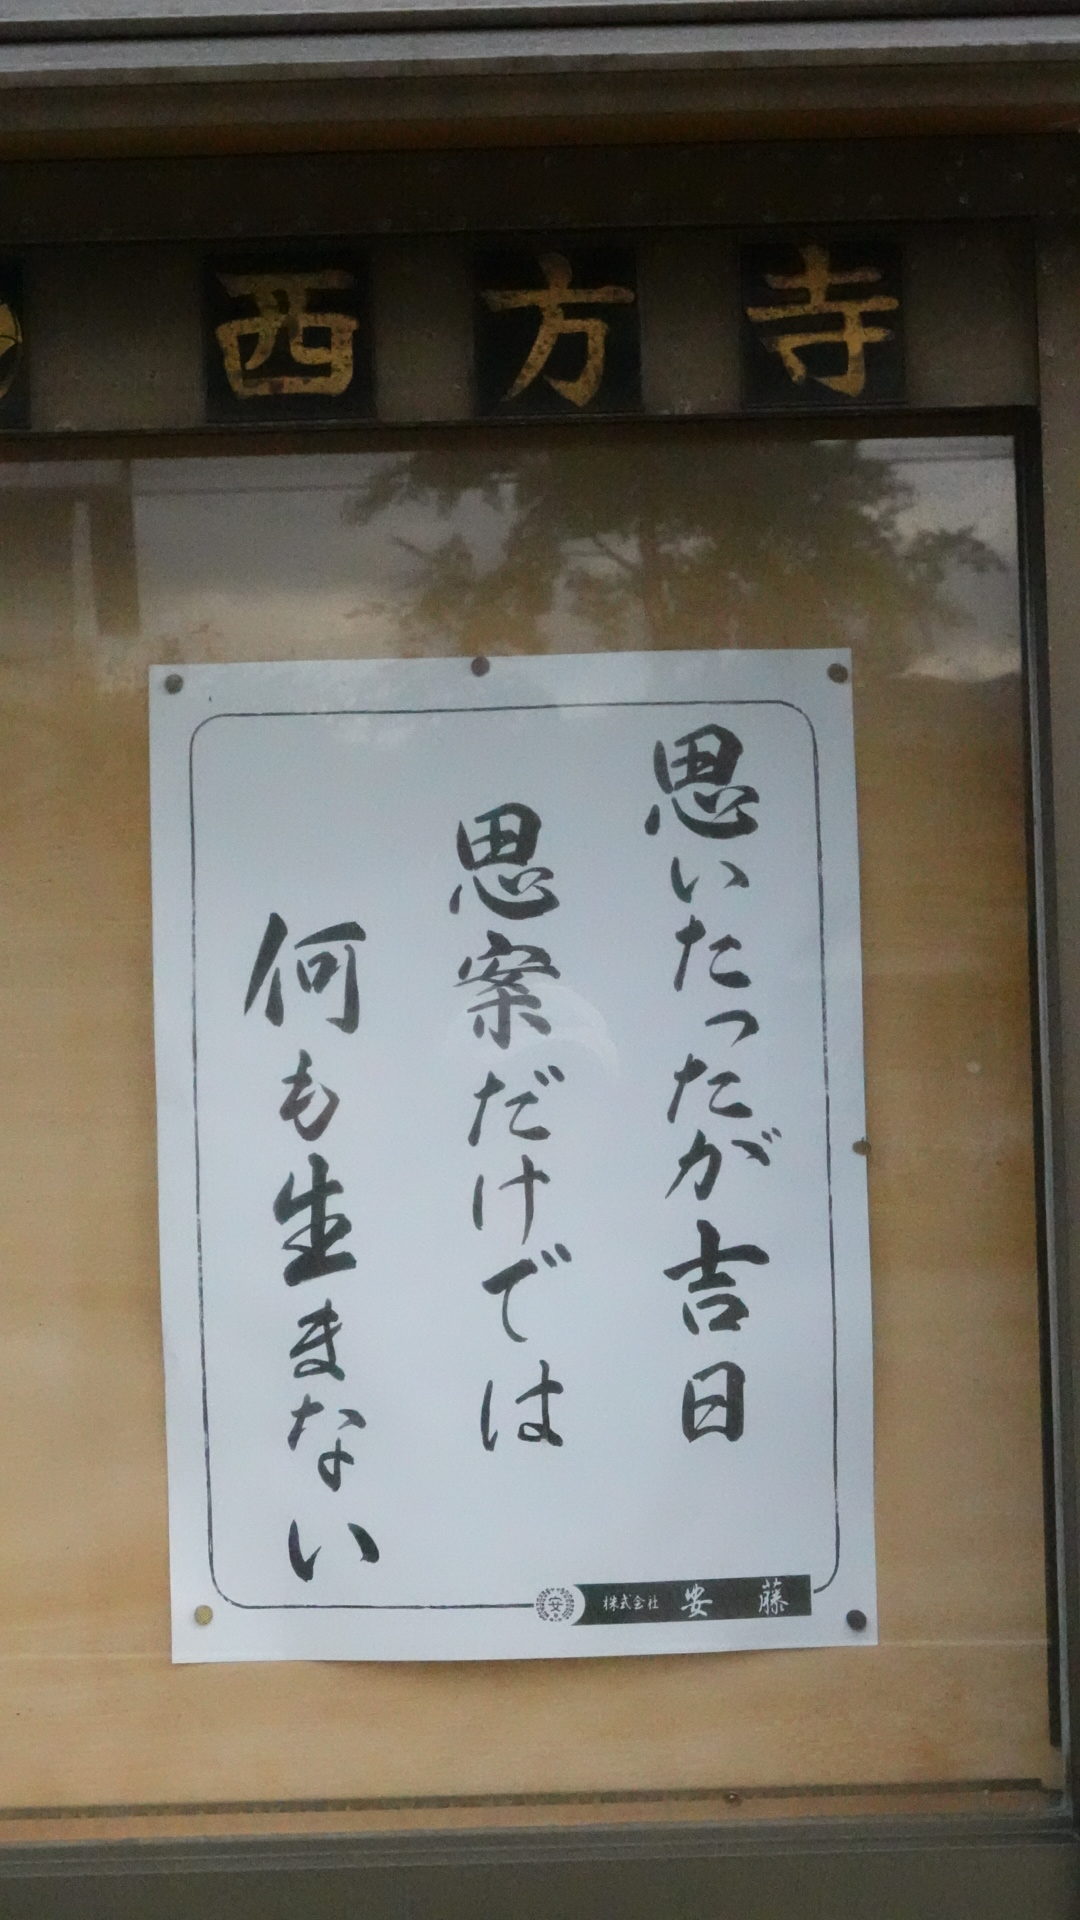 西方寺
思いたったが吉日
思案だけでは
何も生まない
安 株式会社 安藤